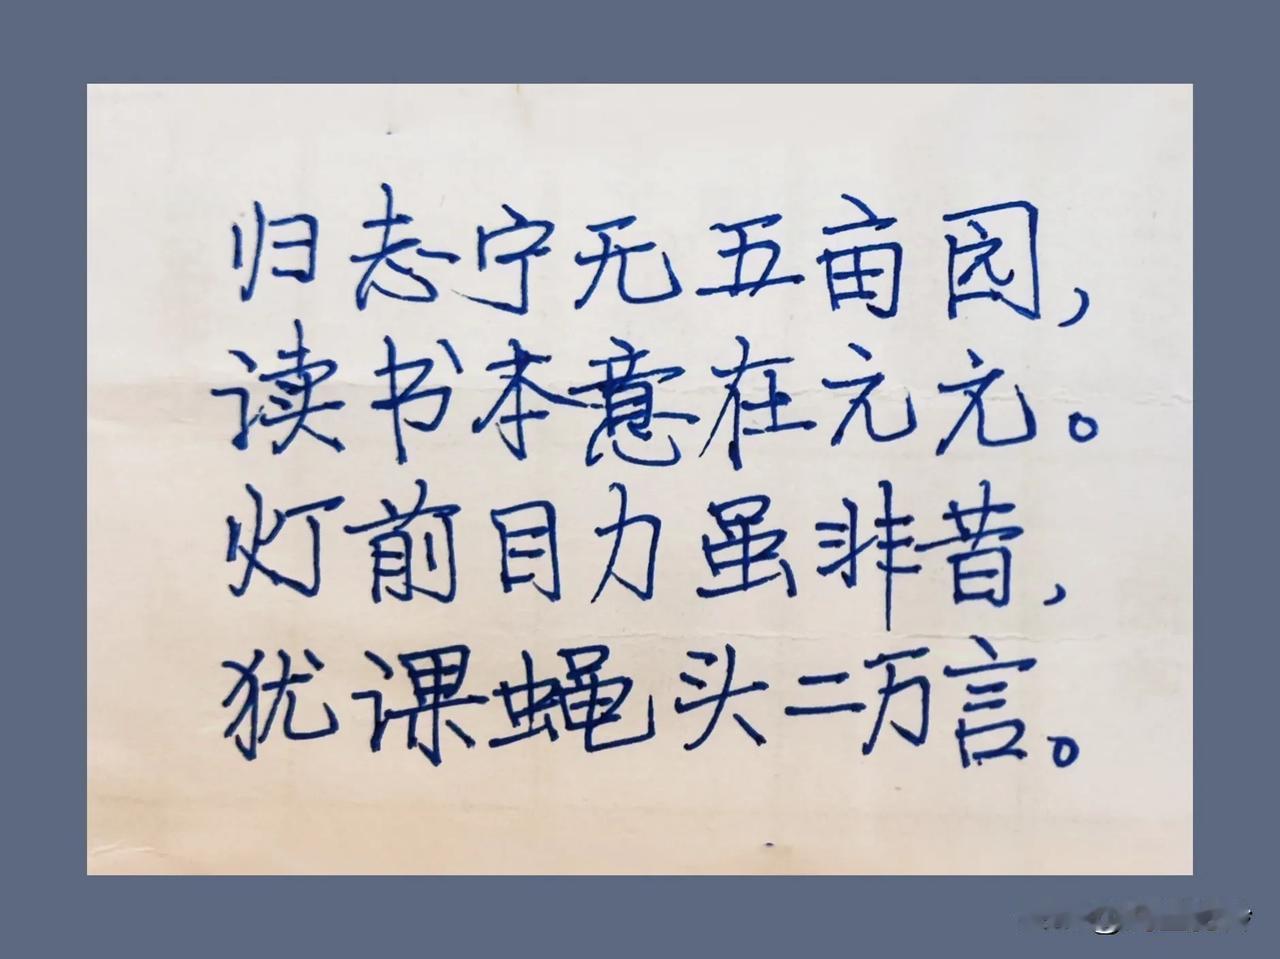 归志宁无五亩园，
读书本意在元元。
灯前目力虽非昔，
犹课蝇头二万言。